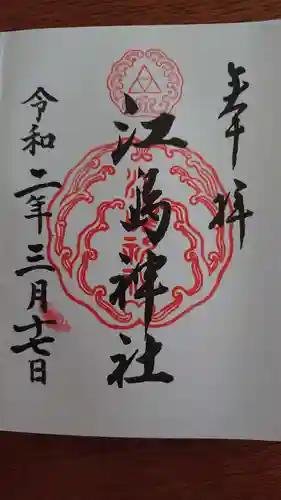 奉拝
江島神社
令和二年三月十七日